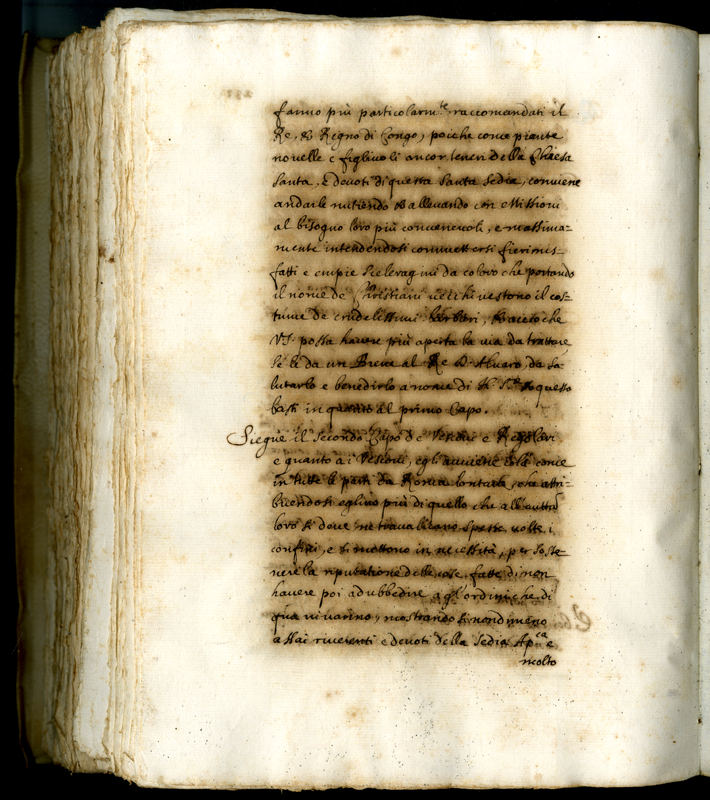 fanno più particolarm.te raccomandati il
Re, & Regno di Congo, poiche come piante
novelle e figlivoli ancor teneri della Chiesa
Santa, e devoti di questa Santa Sedia, conviene
andarle nutiendo & allevando con Missioni
al bisogno loro più convenevoli, e massima-
mente intendendosi commettersi fierimis-
fatti e empie sceleragini da coloro che portando
il nome de Christiani vecchi vestono il cos-
tume de crudelissimi barbari, & accioche
V.S. possa havere più aperta la via da trattare
se le da un Breve al Re D. Alvaro, da sa-
lutarlo e benedirlo a nome di N. S.re & questo
basti in quanto al primo Capo.
Siegue il secondo Capo de Vescovi e Regolari
e quanto a i Vescovi, egli avviene là come
in tutte le parti da Roma lontane, che attri-
buendosi eglino più di quello che all' autta
loro si deve ne travalicano spesse volte i
confini, e si mettono in necessità, per soste-
nere la riputatione delle cose fatte di non
havere poi ad ubbedire a gl' ordini che di
qua vi vanno, mostrandosi nondimeno
assai riverenti e devoti della Sedia Ap.ca e
molto